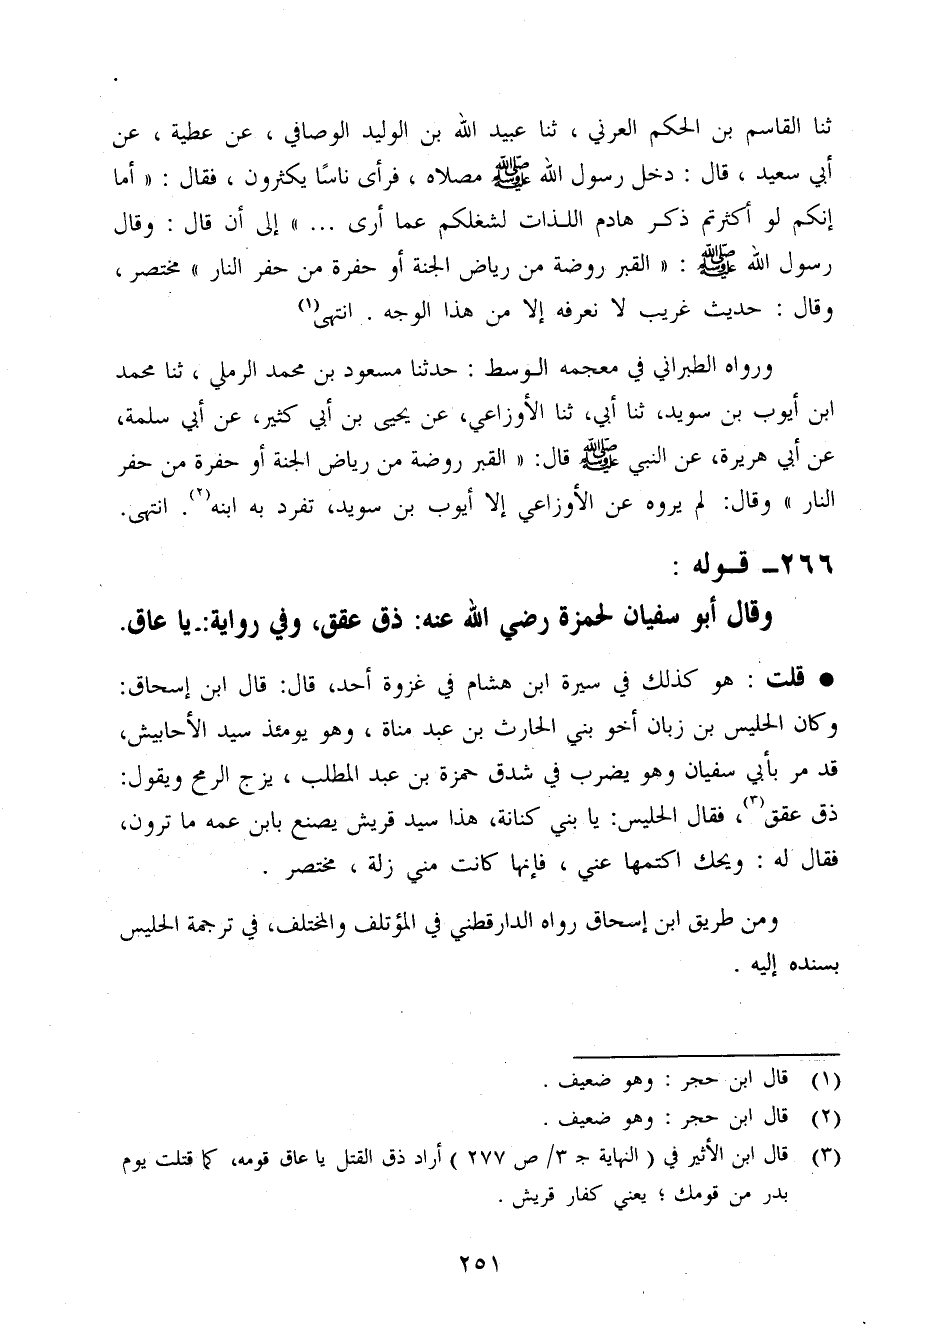 ثنا القاسم بن الحكم العرني ، ثنا عبيد الله بن الوليد الوصافي ، عن عطية ، عن
أبي سعيد ، قال : دخل رسول الله ﷺ مصلاه ، فرأى ناسًا يكثرون ، فقال : « أما
إنكم لو أكثرتم ذكر هادم اللذات لشغلكم عما أرى ... » إلى أن قال : وقال
رسول الله ﷺ : « القبر روضة من رياض الجنة أو حفرة من حفر النار » مختصر ،
وقال : حديث غريب لا نعرفه إلا من هذا الوجه . انتهى(١)
ورواه الطبراني في معجمه الوسط : حدثنا مسعود بن محمد الرملي ، ثنا محمد
ابن أيوب بن سويد، ثنا أبي، ثنا الأوزاعي، عن يحيى بن أبي كثير، عن أبي سلمة،
عن أبي هريرة، عن النبي ﷺ قال: « القبر روضة من رياض الجنة أو حفرة من حفر
النار » وقال: لم يروه عن الأوزاعي إلا أيوب بن سويد، تفرد به ابنه(٢). انتهى.
٢٦٦ـ قوله :
وقال أبو سفيان لحمزة رضي الله عنه: ذق عقق، وفي رواية:ـ يا عاق.
● قلت : هو كذلك في سيرة ابن هشام في غزوة أحد، قال: قال ابن إسحاق:
وكان الحليس بن زبان أخو بني الحارث بن عبد مناة ، وهو يومئذ سيد الأحابيش،
قد مر بأبي سفيان وهو يضرب في شدق حمزة بن عبد المطلب ، يزج الرمح ويقول:
ذق عقق(٣)، فقال الحليس: يا بني كنانة، هذا سيد قريش يصنع بابن عمه ما ترون،
فقال له : ويحك اكتمها عني ، فإنها كانت مني زلة ، مختصر .
ومن طريق ابن إسحاق رواه الدارقطني في المؤتلف والمختلف، في ترجمة الحليس
بسنده إليه .
(١) قال ابن حجر : وهو ضعيف .
(٢) قال ابن حجر : وهو ضعيف .
(٣) قال ابن الأثير في ( النهاية جـ ٣/ ص ٢٧٧ ) أراد ذق القتل يا عاق قومه، كما قتلت يوم
بدر من قومك ؛ يعني كفار قريش .
٢٥١